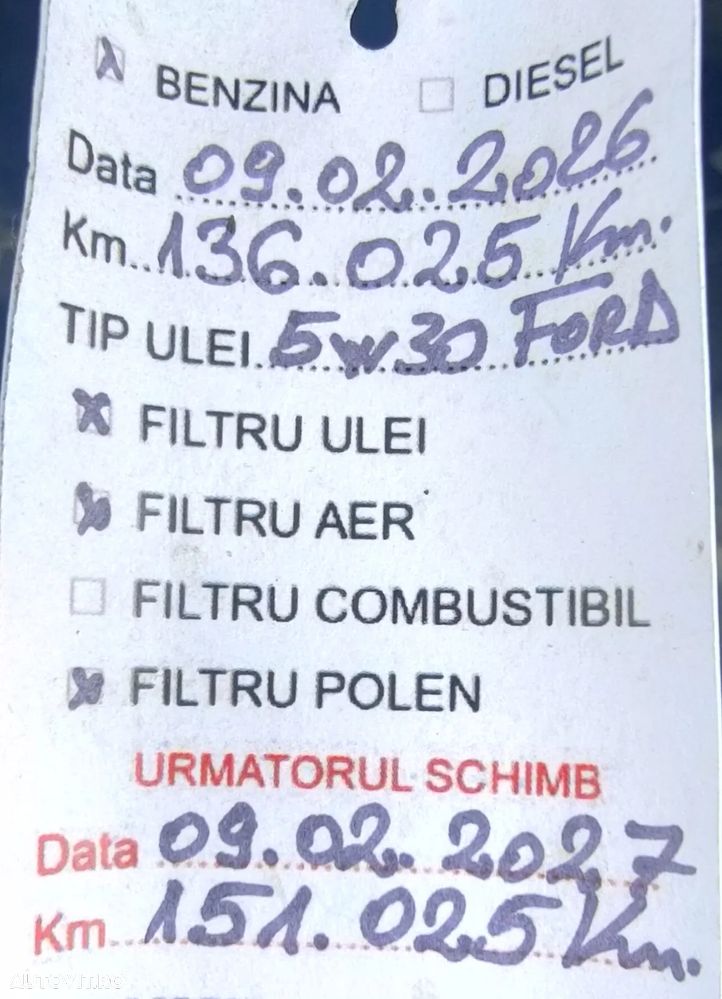 BENZINA DIESEL
Data 09.02.2026
Km 136.025 Km.
TIP ULEI 5W30 FORD
FILTRU ULEI
FILTRU AER
FILTRU COMBUSTIBIL
FILTRU POLEN
URMATORUL SCHIMB
Data 09.02.2027
Km 151.025 Km.